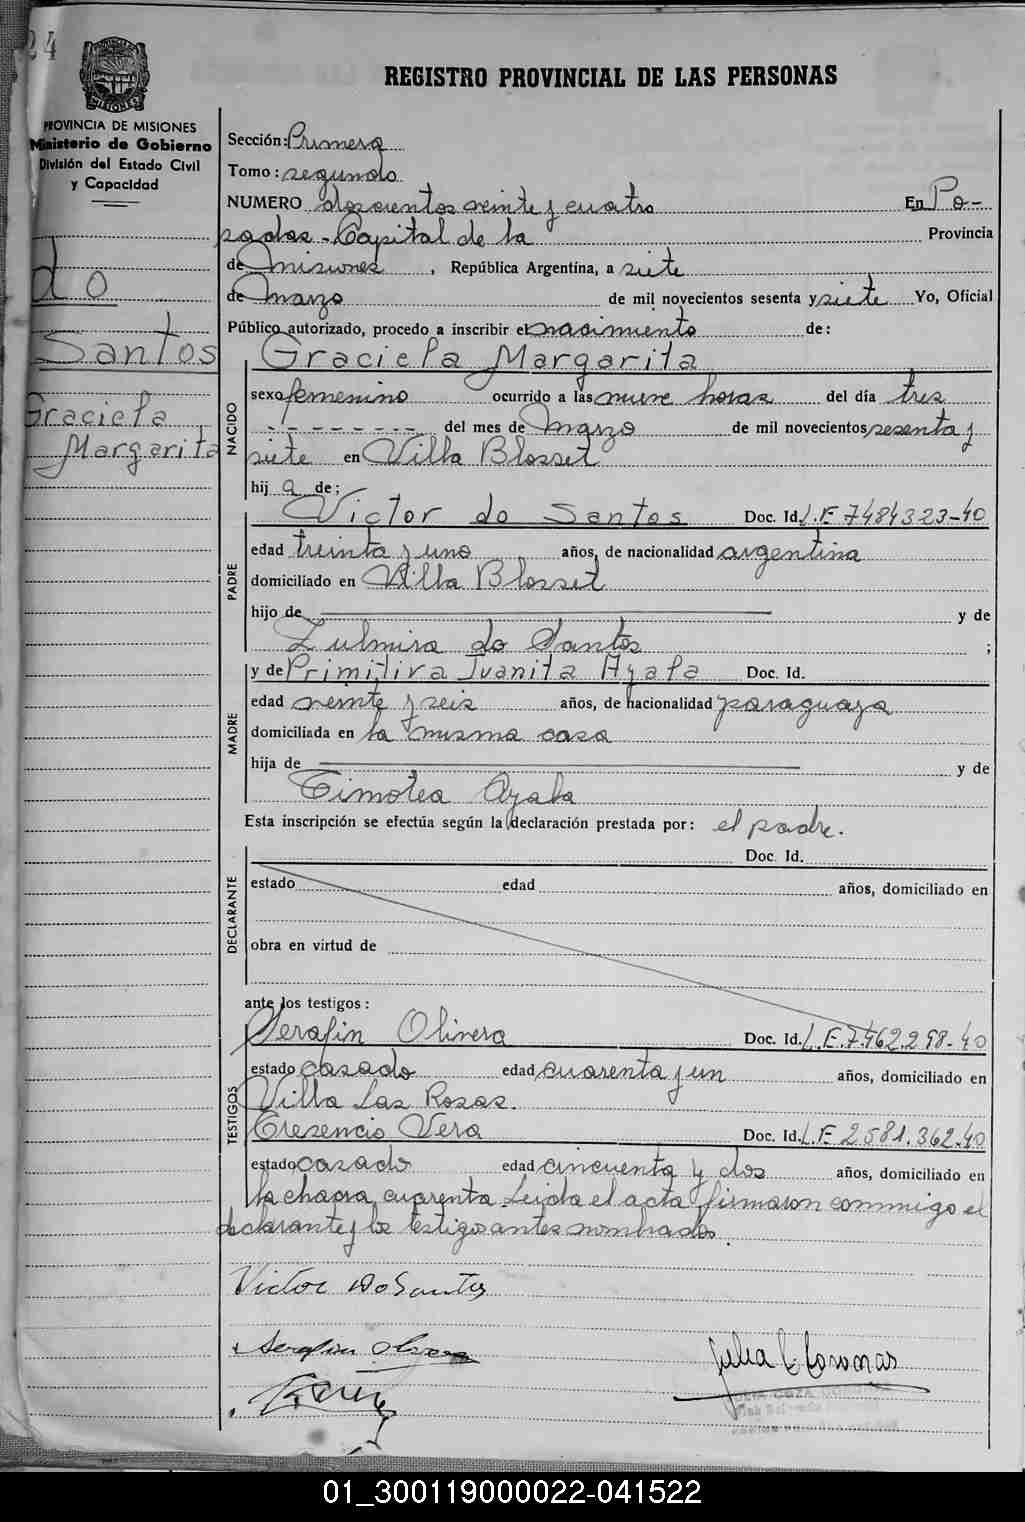 24
PROVINCIA DE MISIONES
Ministerio de Gobierno
División del Estado Civil
y Capacidad
do
Santos
Graciela
Margarita
REGISTRO PROVINCIAL DE LAS PERSONAS
Sección: Primera
Tomo: segundo
NUMERO doscientos veinte y cuatro En Po-
sadas - Capital de la Provincia
de Misiones, República Argentina, a siete
de Marzo de mil novecientos sesenta y siete Yo, Oficial
Público autorizado, procedo a inscribir el nacimiento de:
Graciela Margarita
NACIDO
sexo femenino ocurrido a las nueve horas del día tres
- - - - - - - - del mes de Marzo de mil novecientos sesenta y
siete en Villa Blosset
hija de;
Victor do Santos Doc. Id. L.E 7484323-40
PADRE
edad treinta y uno años, de nacionalidad argentina
domiciliado en Villa Blosset
hijo de y de
Zulmira do Santos ;
y de Primitiva Juanita Ayala Doc. Id.
MADRE
edad veinte y seis años, de nacionalidad paraguaya
domiciliada en la misma casa
hija de y de
Timotea Ayala
Esta inscripción se efectúa según la declaración prestada por: el padre.
Doc. Id.
DECLARANTE
estado edad años, domiciliado en
obra en virtud de
ante los testigos:
Serafin Olivera Doc. Id. L.E.7.462.298-40
TESTIGOS
estado casado edad cuarenta y un años, domiciliado en
Villa Las Rosas.
Cresencio Vera Doc. Id. L.E 2.581.362.40
estado casado edad cincuenta y dos años, domiciliado en
la chacra cuarenta. Leida el acta firmaron conmigo el
declarante y los testigos antes nombrados.
Victor DoSantos
Serafin Olivera
01_300119000022-041522